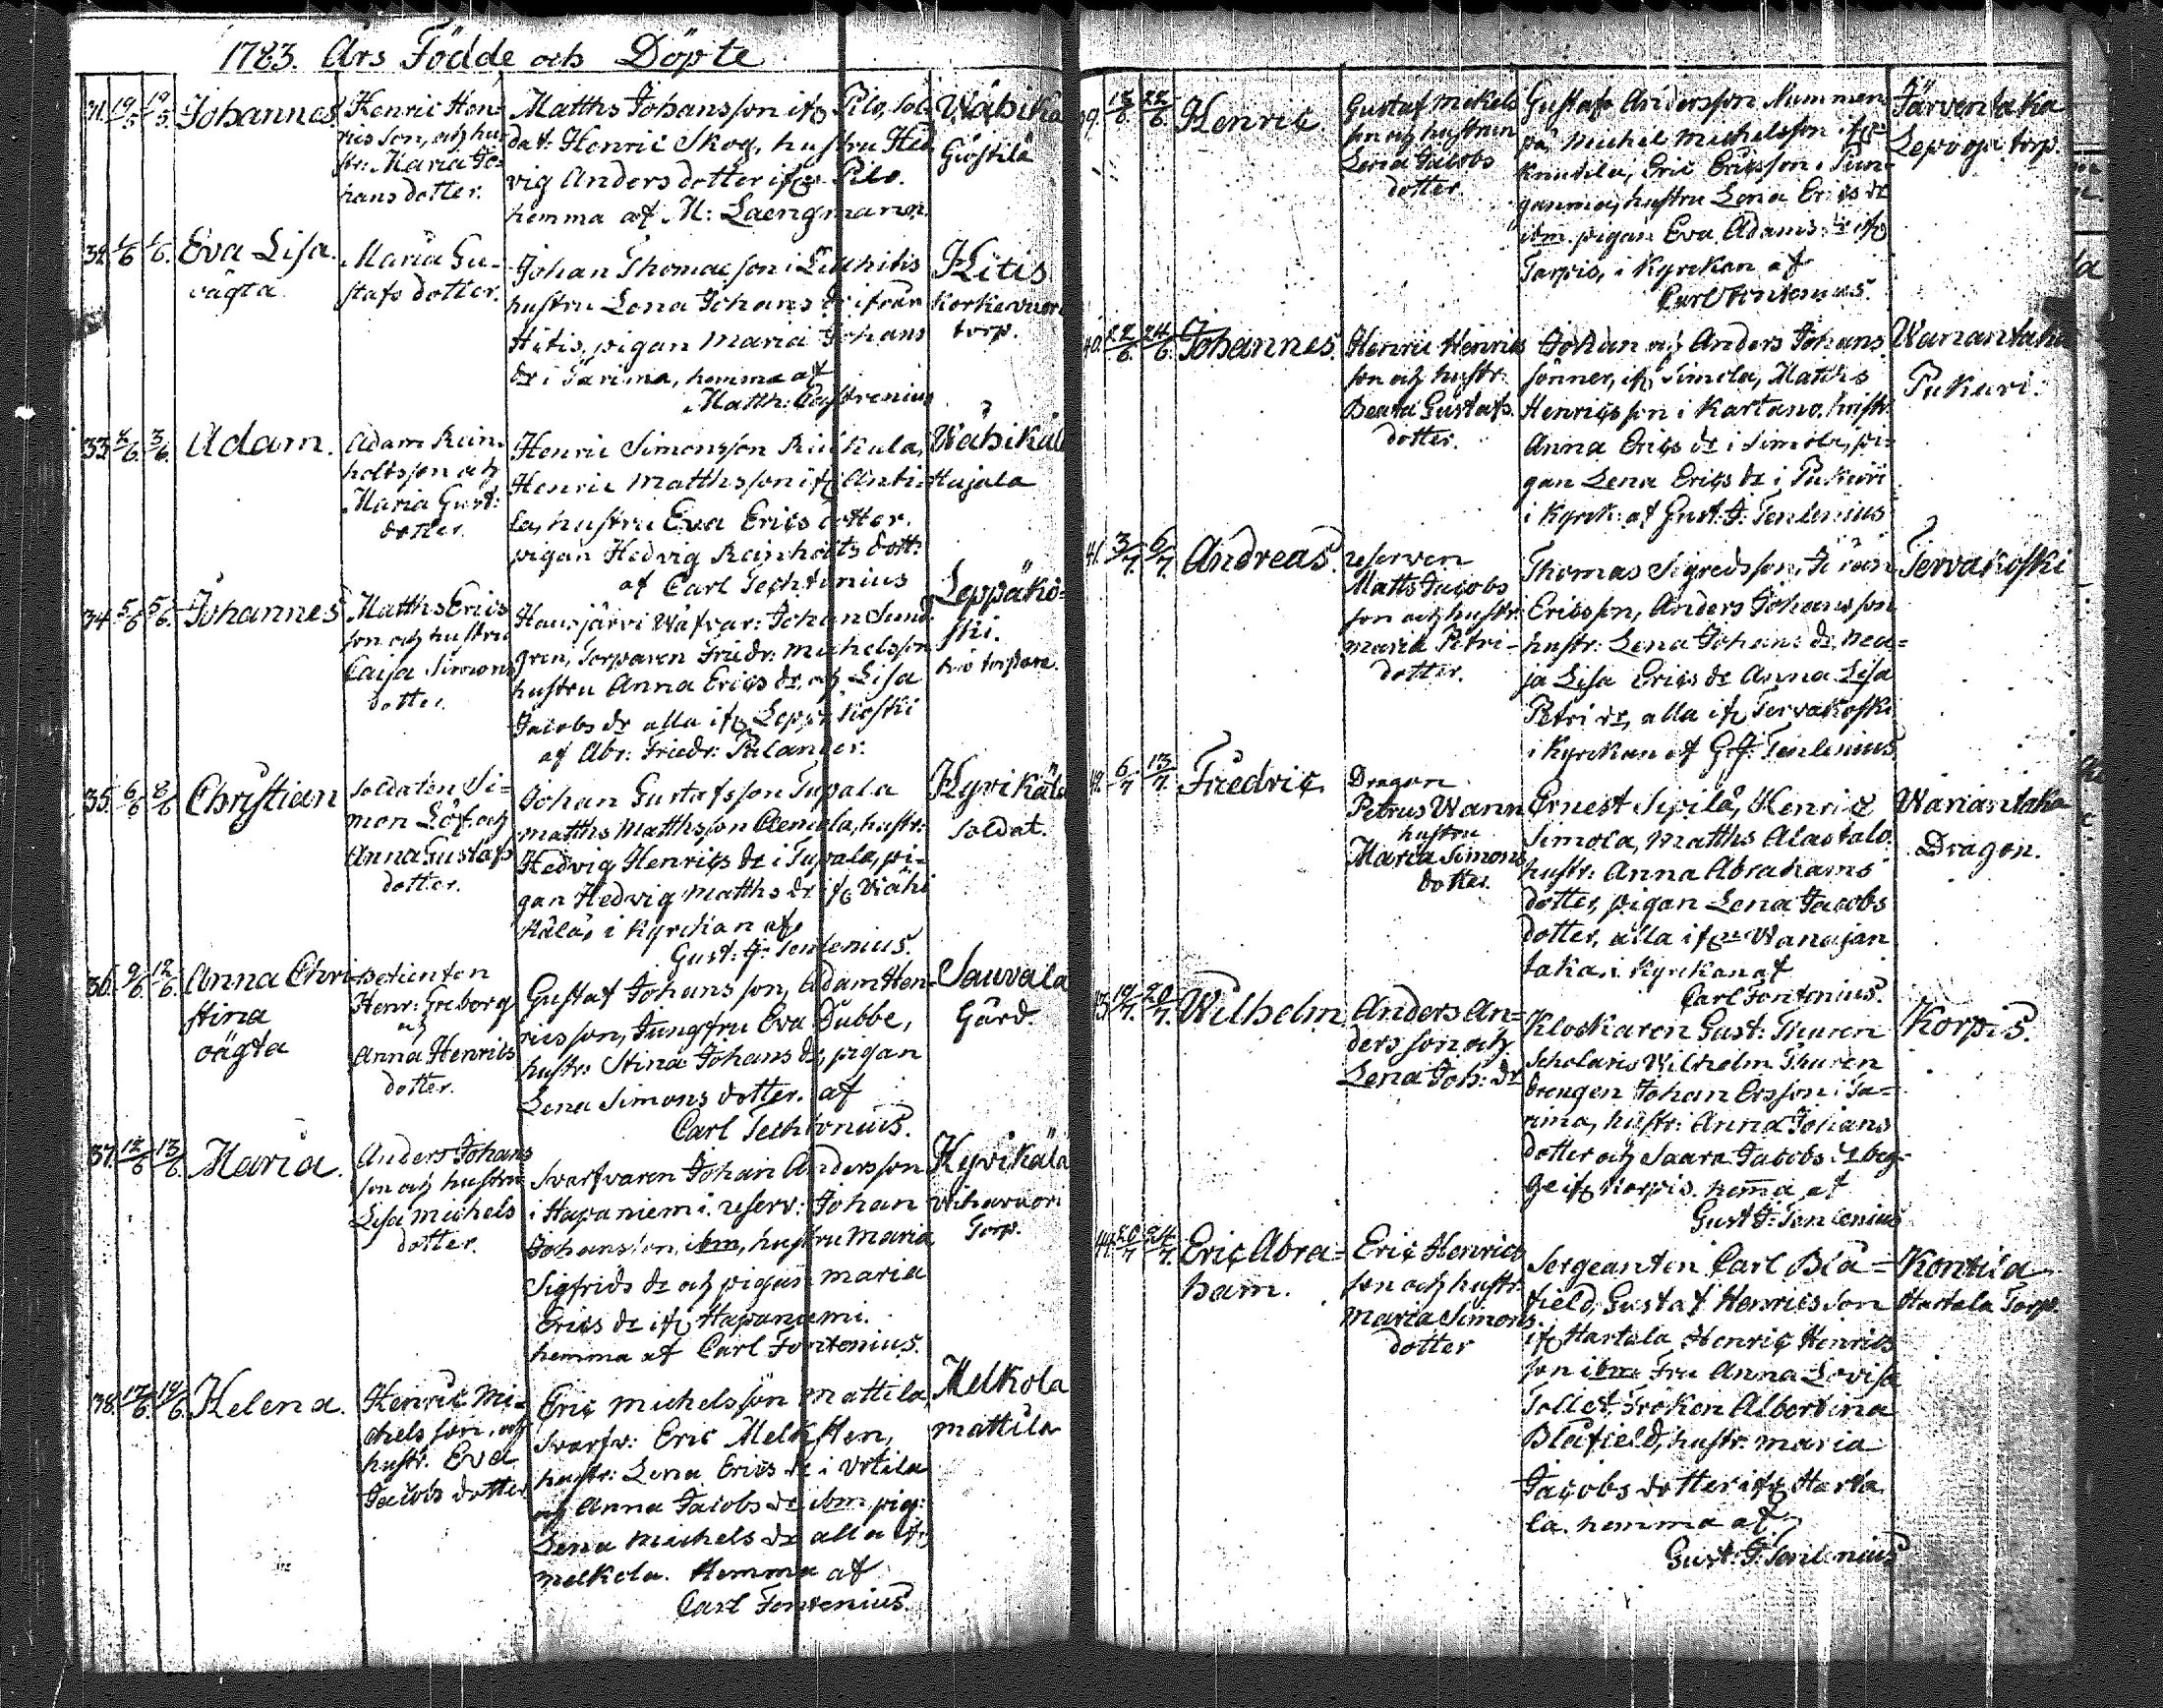 1783. Års Födde och Döpte
31. 19/5 19/5 Johannes
Henric Hen-
rics son, och hu-
str: Maria Jo-
hans dotter.
Matths Johansson ifr Pilo, sol-
dat: Henric Skog, hustru Hed
vig Anders dotter ifr Pilo.
hemma af M: Laengmann
Wähikä
32. 1/6 1/6. Eva Lisa.
oägta
Maria Gu-
stafs dotter.
Johan Thomasson i
hustru Lena Johans dr ifrån
Hitis, pigan Maria Johans
dr i Tarima, hemma af
Matth: Castrenius
Hitis
torp.
33. 2/6. 3/6. Adam.
Adam Rein
holtsson och
Maria Gust:
dotter.
Henric Simonsson
Henric Matthsson ifr Anti-
la, hustru Eva Erics dotter.
pigan Hedvig Reinholts dott:
af Carl
Wähikäl
Hujala
34. 5/6 5/6. Johannes
Matths Erics
son och hustru
Caisa Simons
dotter.
Hausjärvi Wäfvar: Johan Sund
gren, Torparen Friedr: Michelsson
hustru Anna Erics dr, och Lisa
Jacobs dr alla ifr Leppäkoski
af Abr: Friedr: Palander.
Leppäko-
ski.
35. 6/6 8/6 Christian
soldaten Si-
mon Löf och
Anna Gustafs
dotter.
Johan Gustafsson Tupala
Matths Matthsson hustr:
Hedvig Henrics dr i Tupala, pi-
gan Hedvig Matths dr ifr Wähi
kälä, i Kyrckan af
Gust: J: Tenlenius.
Hyvikälä
soldat.
36. 9/6. 12/6. Anna Chri-
stina
oägta
Betienten
Henr: Greborg
och
Anna Henrics
dotter.
Gustaf Johansson, Adam Hen-
ricsson, Jungfru Eva Dubbe,
hustr: Stina Johans dr, pigan
Lena Simons dotter. af
Carl
Sauvala
Gård.
37. 12/6 13/6. Maria.
Anders Johans
son och hustru
Lisa Michels
dotter.
Svarfvaren Johan Andersson
i Hapaniemi. reserv: Johan
Johansson, ibm, hustru Maria
Sigfrids dr och pigan Maria
Erics dr ifr Hapaniemi.
hemma af Carl Fontenius.
Hyvikälä
Torp.
38. 17/6. 19/6. Helena.
Henric Mi-
chels son, och
hustr. Eva
Jacobs dotter
Eric Michelsson Mattila,
Svarfv: Eric Melksten,
hustr: Lena Erics dr i Urtila
och Anna Jacobs dr ibm pig:
Lena Michels dr alla ifr
Melkola. Hemma af
Carl Fontenius.
Melkola
Mattila
39. Henric
Gustaf Mickels
son och hustrun
Lena Jacobs
dotter.
Gustaf Andersson Nummen
på Michel Michelsson ifr
Knuutila, Eric Ericsson i Tun-
hustru Lena Erics dr
ibm. pigan Eva Adams dr ifr
Tarpis, i Kyrckan af
Carl Fontenius.
Järventaka
torp.
40. 22/6. 24/6. Johannes
Henric Henrics
son och hustr:
Beata Gustafs.
dotter.
Johan och Anders Johans
sönner, ifr Simola, Matths
Henricsson i Kartano, hustr:
Anna Erics dr i Simola, pi-
gan Lena Erics dr i Pukuri
i Kyrck: af Gust: J: Tenlenius
Wanantaka
Pukuri.
41. 3/7. 6/7. Andreas.
reserven
Matts Jacobs
son och hustr:
Maria Petri-
dotter.
Thomas Sigredsson,
Ericsson, Anders Johansson
hustr: Lena Johans dr,
Lisa Erics dr Anna Lisa
Petri dr, alla ifr Tervakoski
i Kyrckan af G: J: Tenlenius
Tervakoski
42. 6/7 13/7. Friedric
Dragon
Petrus Wann
hustru
Maria Simons
dotter.
Ernest Sipilä, Henric
Simola, Matths Alastalo
hustr: Anna Abrahams
dotter, pigan Lena Jacobs
dotter, alla ifrn Wanajan
taka, i Kyrckan af
Carl Fontenius.
Wanantaka
Dragon.
43. 19/7. 20/7. Wilhelm
Anders An-
dersson och
Lena Joh: dr
Klockaren Gust: Thuren
Scholaris Wilhelm Thuren
drengen Johan Ersson i Ta-
rima, hustr: Anna Johans
dotter och Saara Jacobs dr beg-
ge ifr Korpis. hema af
Gust J: Tenlenius
Korpis.
44. 20/7 24/7. Eric Abra-
ham.
Eric Henrics
son och hustr:
Maria Simons
dotter
Sergeanten Carl Blå-
field, Gustaf Henricsson
ifr Hartala Henric Henrics
son ibm Fru Anna Lovisa
Tollet, Fröken Albertina
Blåfield, hustr: Maria
Jacobs dotter ifr Harta
la. hemma af
Gust: J: Tenlenius
Kontila
Hartala Torp.